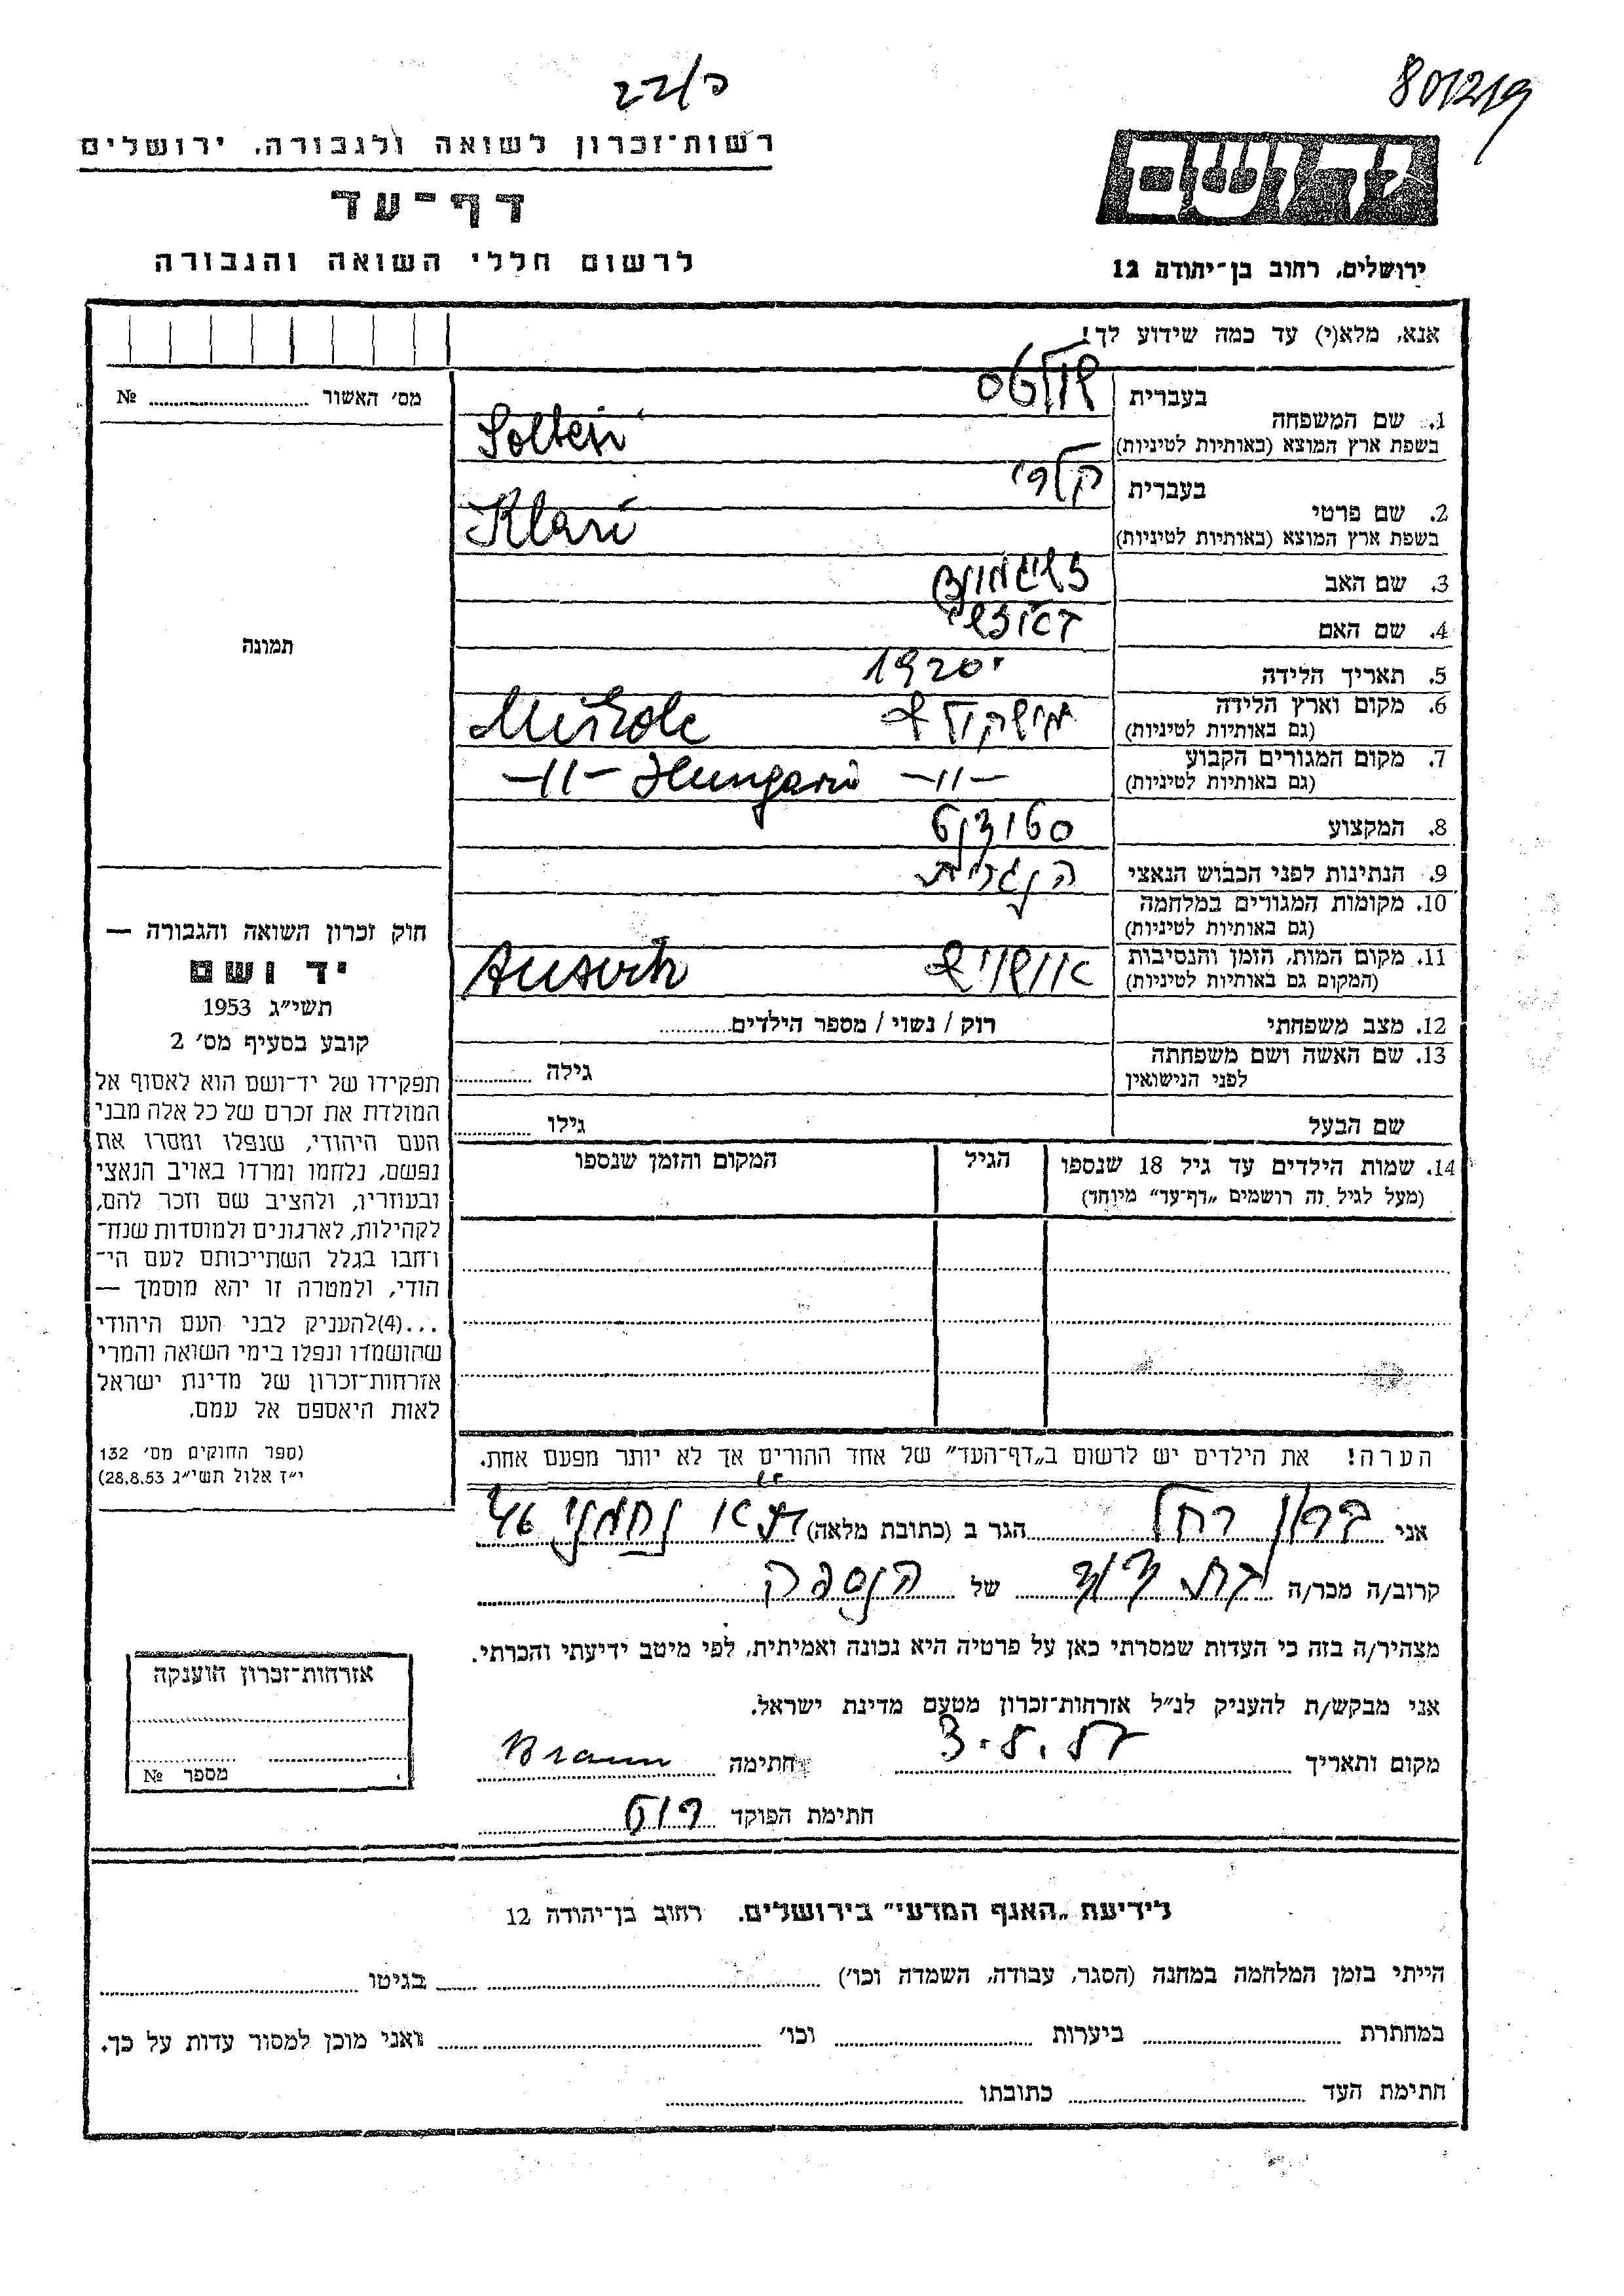 801219
פ/22
יד ושם
רשות־זכרון לשואה ולגבורה, ירושלים
דף־עד
לרשום חללי השואה והגבורה
ירושלים, רחוב בן־יהודה 12
אנא, מלא(י) עד כמה שידוע לך!
מס׳ האשור №
תמונה
1. שם המשפחה בעברית
בשפת ארץ המוצא (באותיות לטיניות) Soltesi
2. שם פרטי בעברית קלרי
בשפת ארץ המוצא (באותיות לטיניות) Klari
3. שם האב
4. שם האם
5. תאריך הלידה 1920
6. מקום וארץ הלידה Miskolc
(גם באותיות לטיניות)
7. מקום המגורים הקבוע -11- -11- Hungaria
(גם באותיות לטיניות)
8. המקצוע סטודנט
9. הנתינות לפני הכבוש הנאצי הנגרית
10. מקומות המגורים במלחמה
(גם באותיות לטיניות)
11. מקום המות, הזמן והנסיבות אושויץ
(המקום גם באותיות לטיניות)
12. מצב משפחתי רוק / נשוי / מספר הילדים
13. שם האשה ושם משפחתה גילה
לפני הנישואין
שם הבעל גילו
14. שמות הילדים עד גיל 18 שנספו הגיל המקום והזמן שנספו
(מעל לגיל זה רושמים „דף־עד״ מיוחד)
הערה! את הילדים יש לרשום ב„דף־העד״ של אחד ההורים אך לא יותר מפעם אחת.
חוק זכרון השואה והגבורה —
יד ושם
תשי״ג 1953
קובע בסעיף מס׳ 2
תפקידו של יד־ושם הוא לאסוף אל
המולדת את זכרם של כל אלה מבני
העם היהודי, שנפלו ומסרו את
נפשם, נלחמו ומרדו באויב הנאצי
ובעוזריו, ולהציב שם וזכר להם,
לקהילות, לארגונים ולמוסדות שנח־
רבו בגלל השתייכותם לעם הי־
הודי, ולמטרה זו יהא מוסמך —
...(4) להעניק לבני העם היהודי
שהושמדו ונפלו בימי השואה והמרי
אזרחות־זכרון של מדינת ישראל
לאות היאספם אל עמם.
(ספר החוקים מס׳ 132
י״ז אלול תשי״ג 28.8.53)
אני ברון רחל הגר ב (כתובת מלאה) ת״א נחמני 46
קרוב/ה מכר/ה בת דוד של הנספה
מצהיר/ה בזה כי העדות שמסרתי כאן על פרטיה היא נכונה ואמיתית, לפי מיטב ידיעתי והכרתי.
אני מבקש/ת להעניק לנ״ל אזרחות־זכרון מטעם מדינת ישראל.
מקום ותאריך חתימה Braun
חתימת הפוקד
אזרחות־זכרון הוענקה
מספר №
לידיעת „האגף המדעי״ בירושלים. רחוב בן־יהודה 12
הייתי בזמן המלחמה במחנה (הסגר, עבודה, השמדה וכו׳) בגיטו
במחתרת ביערות וכו׳ ואני מוכן למסור עדות על כך.
חתימת העד כתובתו